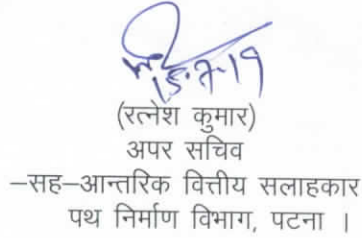 15.7.19
(रत्नेश कुमार)
अपर सचिव
–सह–आन्तरिक वित्तीय सलाहकार
पथ निर्माण विभाग, पटना ।